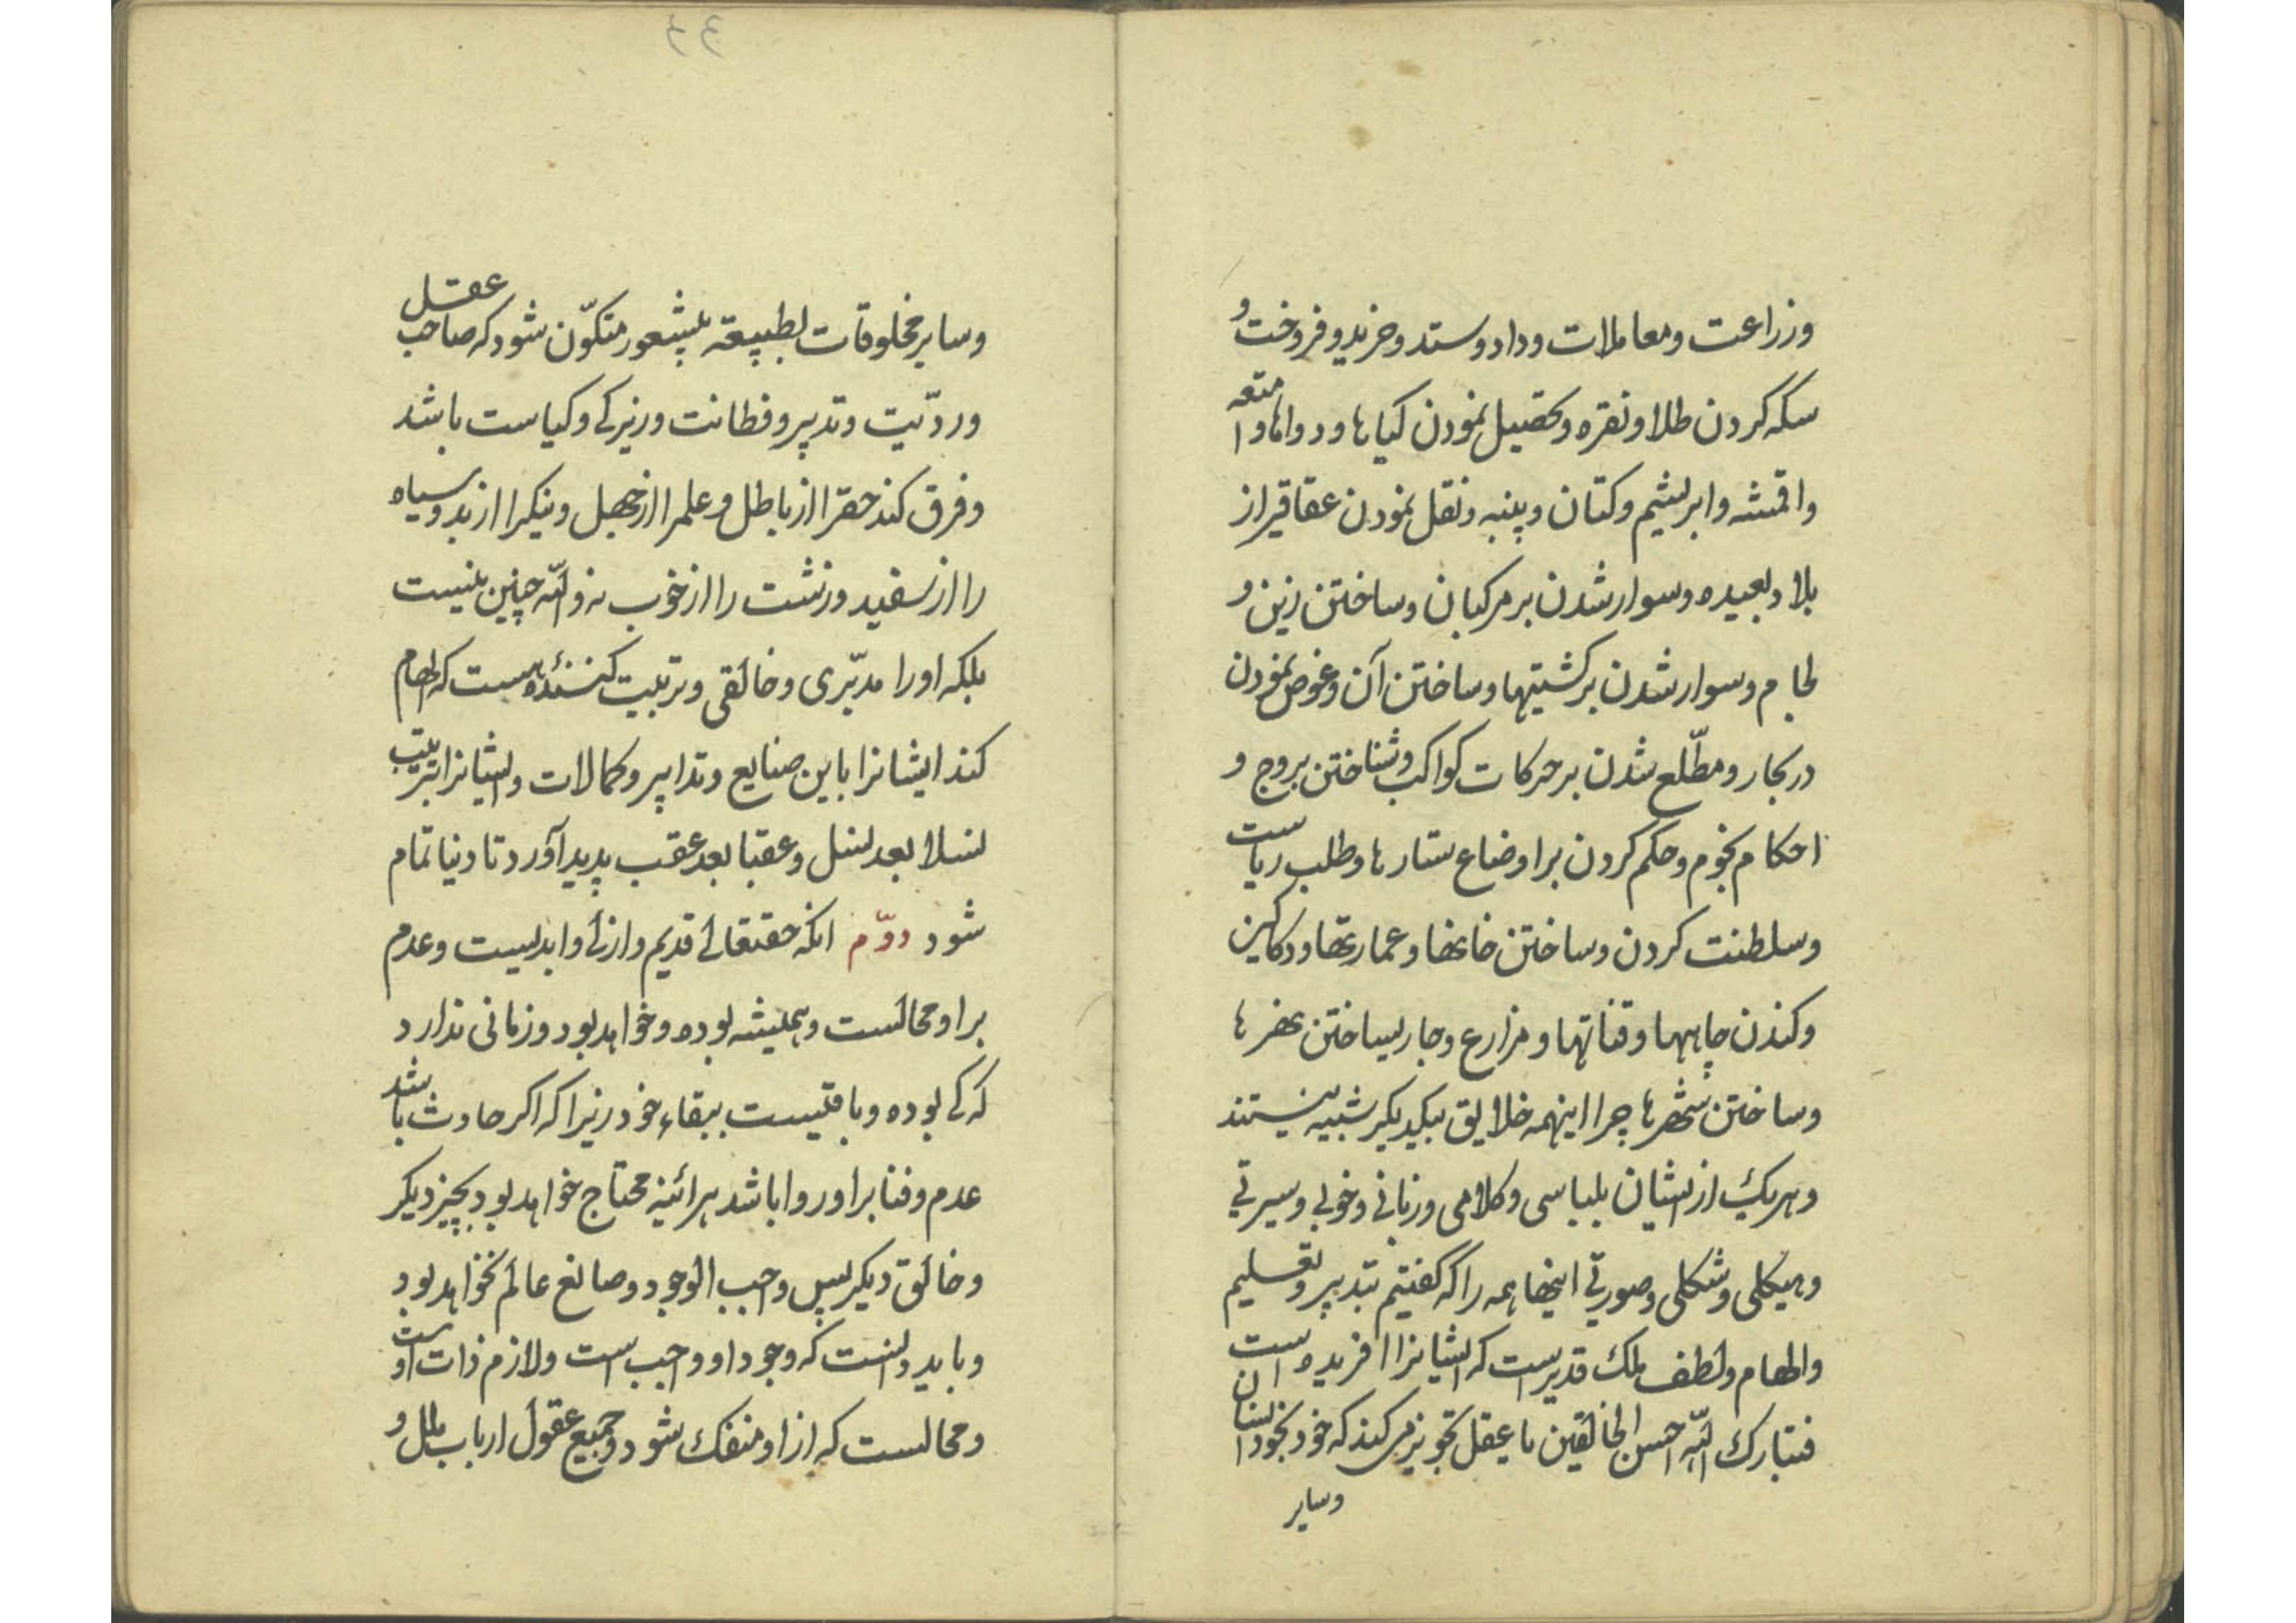 وزراعت ومعاملات وداد وستد وخرید وفروخت و
سکه کردن طلا ونقره وتحصیل نمودن کیاها ودواها وامتعه
واقمشه وابریشم وکتان وپنبه ونقل نمودن عقاقیر از
بلاد بعیده وسوار شدن بر مرکبان وساختن زین و
لجام وسوار شدن بر کشتیها وساختن آن وغوص نمودن
در بحار ومطّلع شدن بر حرکات کواکب وشناختن بروج و
احکام نجوم وحکم کردن بر اوضاع ستارها وطلب ریاست
وسلطنت کردن وساختن خانها وعمارتها ودکاکین
وکندن چاهها وقناتها ومزارع وجاری ساختن نهرها
وساختن شهرها چرا اینهمه خلایق بیکدیکر شبیه نیستند
وهریک از ایشان بلباسی وکلامی وزبانی وخوئی وسیرتی
وهیکلی وشکلی وصورتی اینها همه را که کفتیم بتدبیر وتعلیم
والهام ولطف ملک قدیرست که ایشانرا افریده است
فتبارک اللّه احسن الخالقین یا عقل تجویز می کند که خود بخود انسان
وسایر
وسایر مخلوقات بطبیعة بیشعور متکوّن شود که صاحب عقل
وردیّت وتدبیر وفطانت وزیرکی وکیاست باشد
وفرق کند حقرا از باطل وعلمرا از جهل ونیکرا از بد وسیاه
را از سفید وزشت را از خوب نه واللّه چنین نیست
بلکه اورا مدبّری وخالقی وتربیت کنندهٔ هست که الهام
کند ایشانرا باین صنایع وتدابیر وکمالات وایشانرا بترتیب
نسلا بعد نسل وعقبا بعد عقب پدید آورد تا دنیا تمام
شود دوّم انکه حقتعالی قدیم وازلی وابدیست وعدم
بر او محالست وهمیشه بوده وخواهد بود وزمانی ندارد
که کی بوده وباقیست ببقاء خود زیرا که اکر حادث باشد
عدم وفنا بر او روا باشد هرائینه محتاج خواهد بود بچیز دیکر
وخالق دیکر پس واجب الوجود وصانع عالم نخواهد بود
وباید دانست که وجود او واجب است ولازم ذات اوست
ومحالست که از او منفک شود وجمیع عقول ارباب ملل و